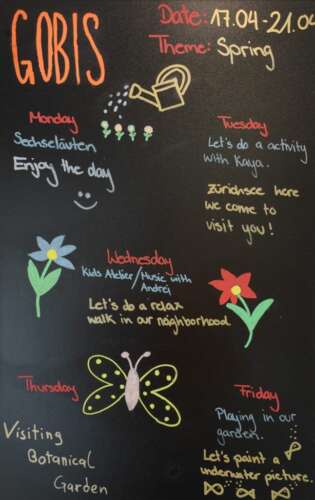 GOBIS
Date: 17.04-21.04
Theme: Spring
Monday
Sechseläuten
Enjoy the day
Tuesday
Let's do a activity
with Kaya.
Zürichsee here
we come to
visit you!
Wednesday
Kids Atelier/Music with
Andrei
Let's do a relax
walk in our neighborhood.
Thursday
Visiting
Botanical
Garden
Friday
Playing in our
garden.
Let's paint a
underwater picture.